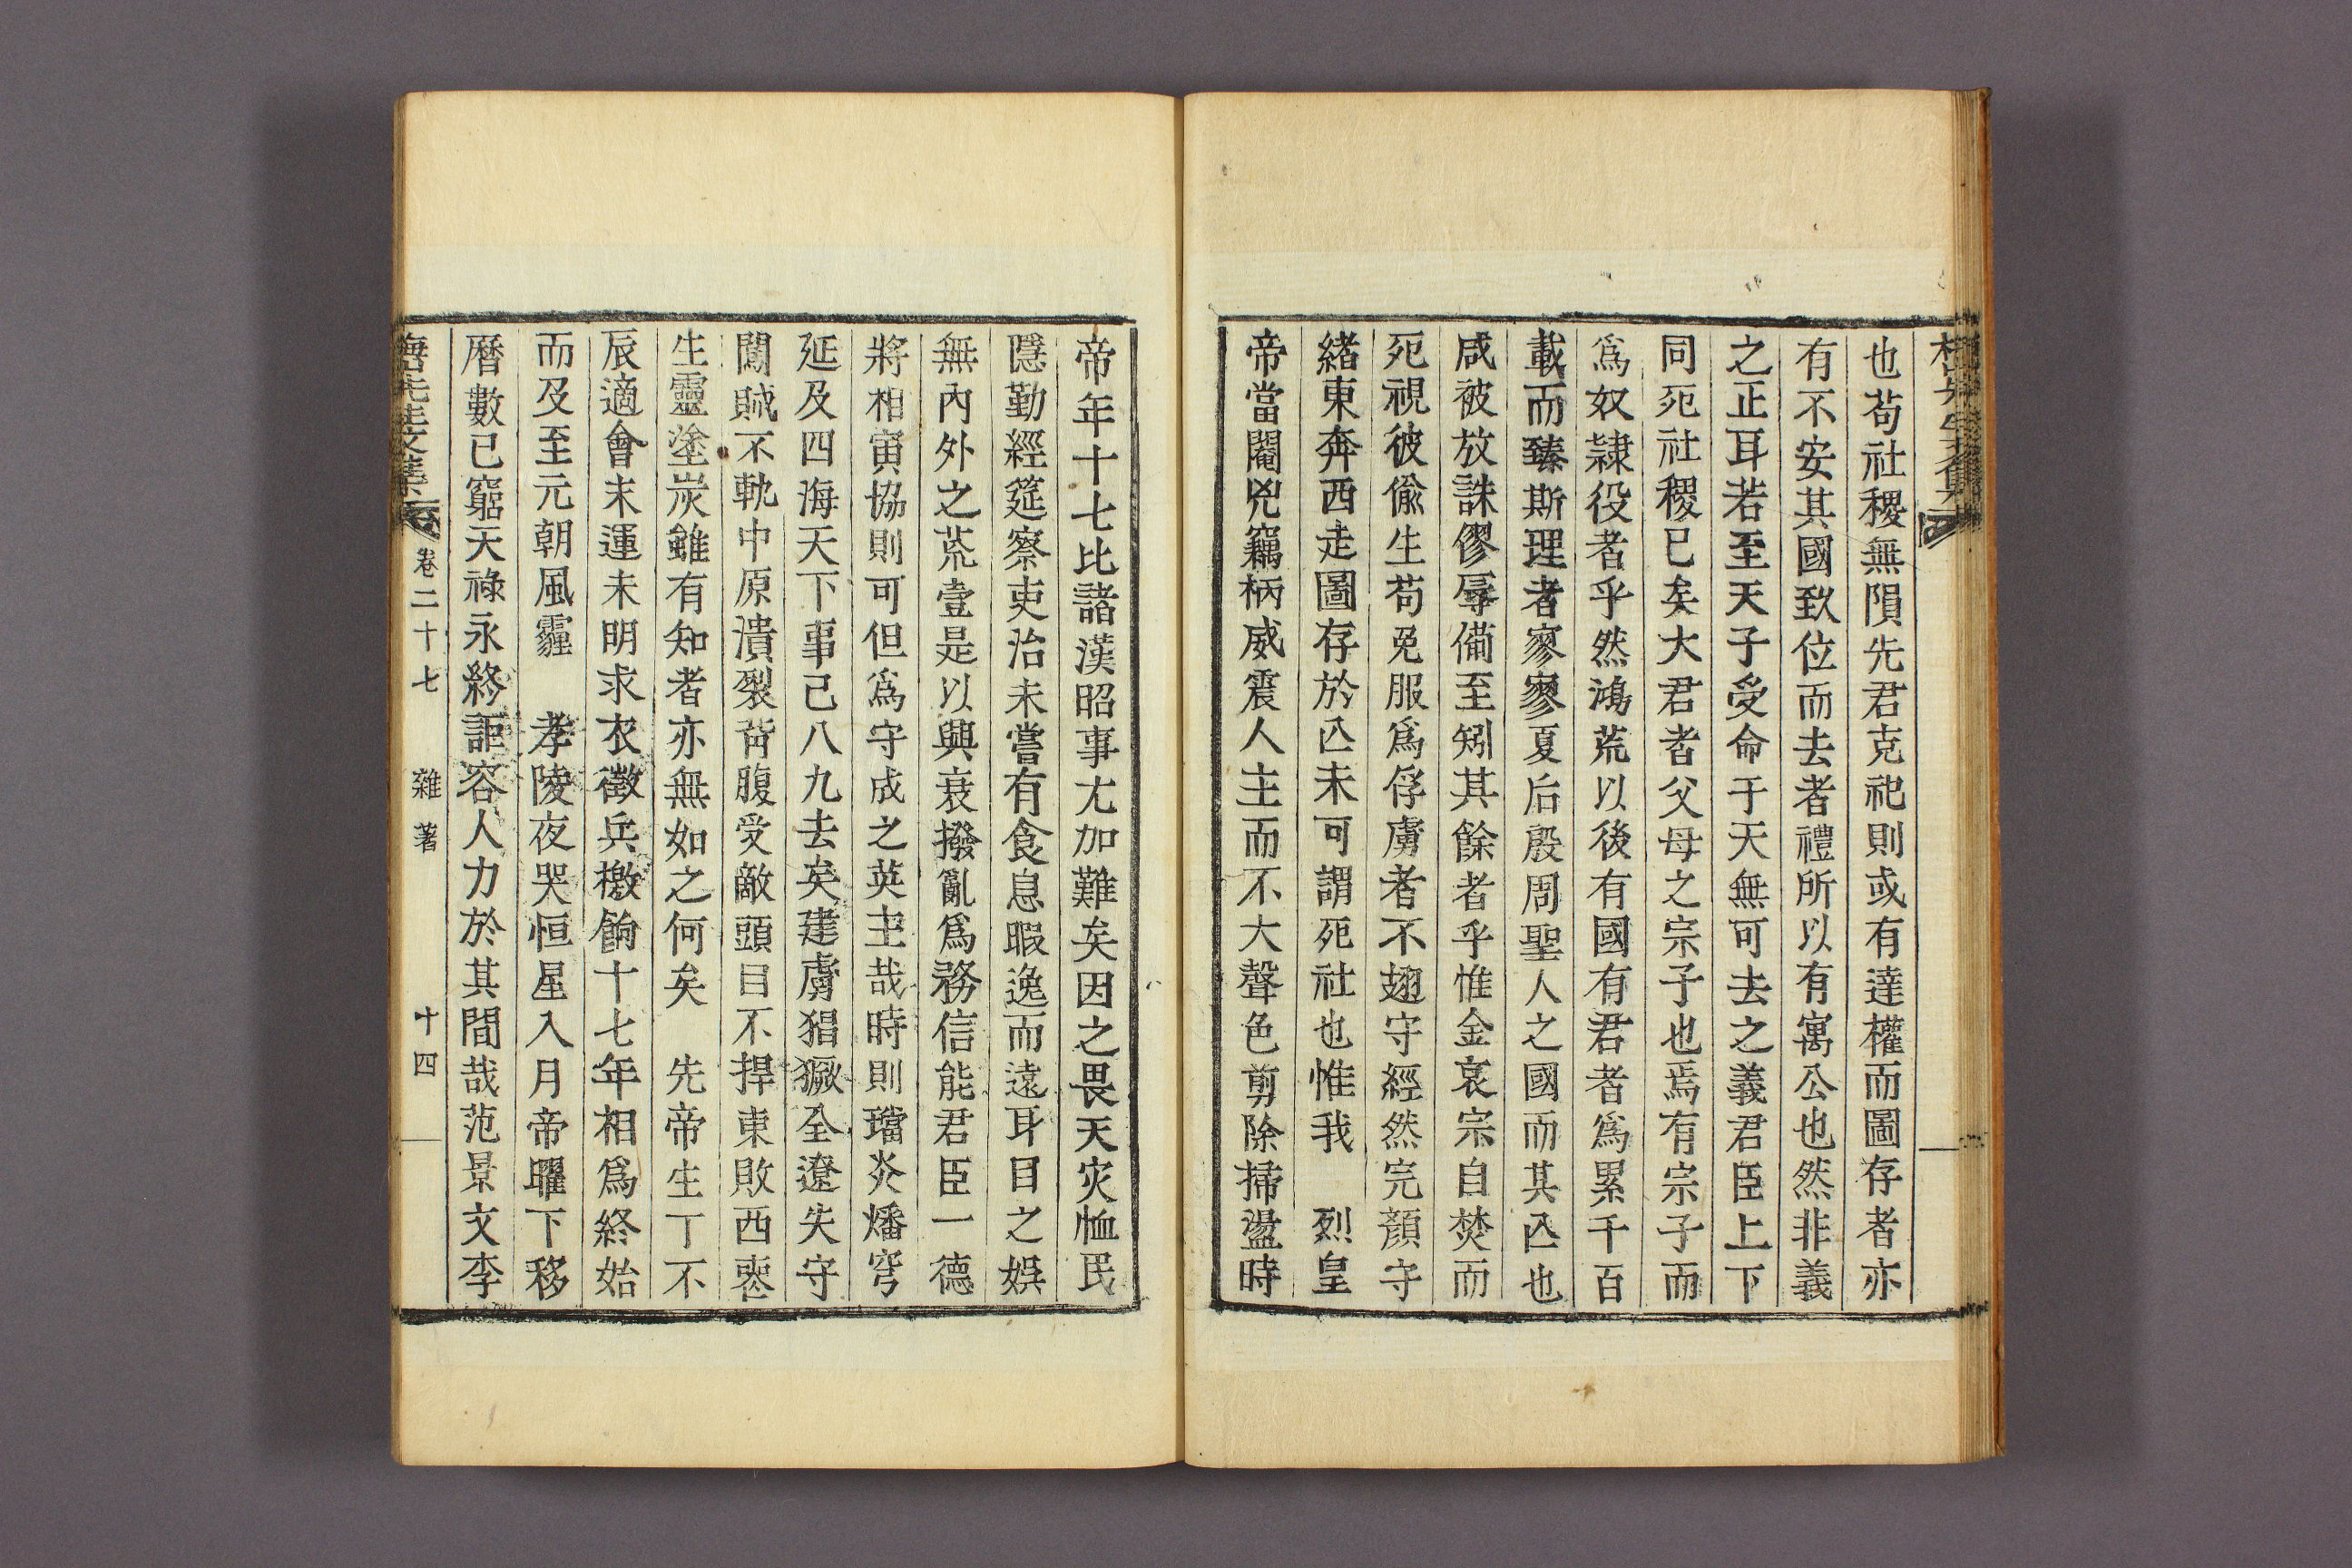 也苟社稷無隕先君克祀則或有達權而圖存者亦
有不安其國致位而去者禮所以有寓公也然非義
之正耳若至天子受命于天無可去之義君臣上下
同死社稷已矣大君者父母之宗子也焉有宗子而
爲奴隷役者乎然鴻荒以後有國有君者爲累千百
載而臻斯理者寥寥夏后殷周聖人之國而其亾也
咸被放誅僇辱備至矧其餘者乎惟金哀宗自焚而
死視彼偸生苟免服爲俘虜者不翅守經然完顏守
緖東奔西走圖存於亾未可謂死社也惟我　烈皇
帝當閹兇竊柄威震人主而不大聲色剪除掃盪時
帝年十七比諸漢昭事尤加難矣因之畏天灾恤民
隱勤經筵察吏治未嘗有食息暇逸而遠耳目之娛
無內外之荒壹是以興衰撥亂爲務信能君臣一德
將相寅協則可但爲守成之英主哉時則璫炎燔穹
延及四海天下事已八九去矣建虜猖獗全遼失守
闖賊不軌中原潰裂背腹受敵頭目不捍東敗西喪
生靈塗炭雖有知者亦無如之何矣　先帝生丁不
辰適會末運未明求衣徵兵檄餉十七年相爲終始
而及至元朝風霾　孝陵夜哭恒星入月帝曜下移
曆數已窮天祿永終詎容人力於其間哉范景文李
先生文集 卷二十七 雜著 十四